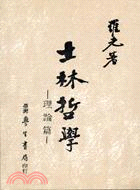 羅光著
士林哲學
—理論篇—
學生書局印行